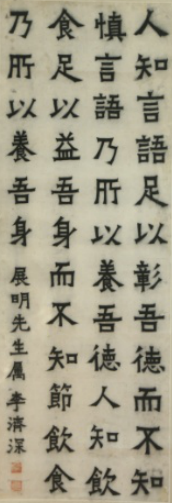 人知言語足以彰吾德而不知
慎言語乃所以養吾德人知飲
食足以益吾身而不知節飲食
乃所以養吾身
展明先生属 李濟深